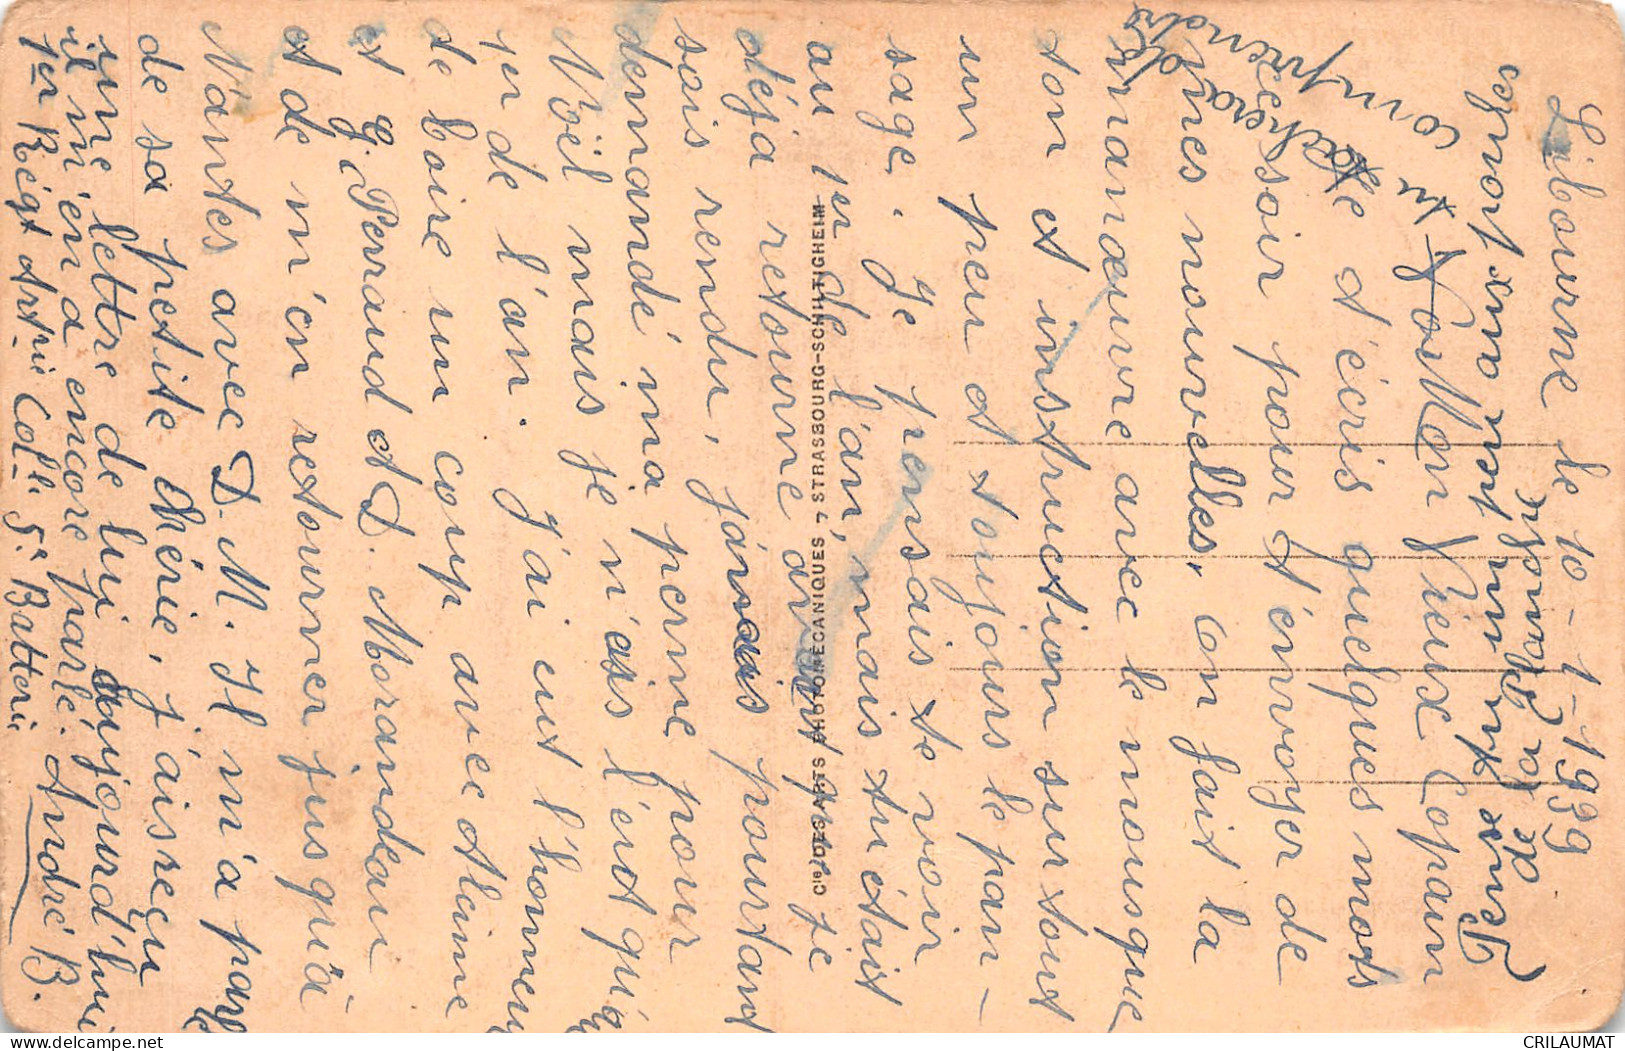 Libourne le 10-1-1939
Mon Vieux Copain
Je t'écris quelques mots
ce soir pour t'envoyer de
mes nouvelles, on fait la
manœuvre avec le mousque
ton et instruction surtout
un peu et toujours le pan-
sage. Je pensais te voir
au 1er de l'an, mais tu étais
déjà retourné avant que je
sois rendu, jamais pourtant
demandé ma perme pour
Noël mais je n'ais l'eut qu'
1er de l'an. J'ai eut l'honneur
de boire un coup avec
et G. Perraud et D. Morandeau
et de m'en retourner jusqu'à
Nantes avec D. M. Il m'a parlé
de sa petite chérie, j'ai reçu
une lettre de lui aujourd'hui
il m'en a encore parlé. André B.
1er Régt Artrie Colle 5e Batterie
tu tachera de
comprendre
Cie DES ARTS PHOTOMÉCANIQUES, STRASBOURG-SCHILTIGHEIM
CRILAUMAT